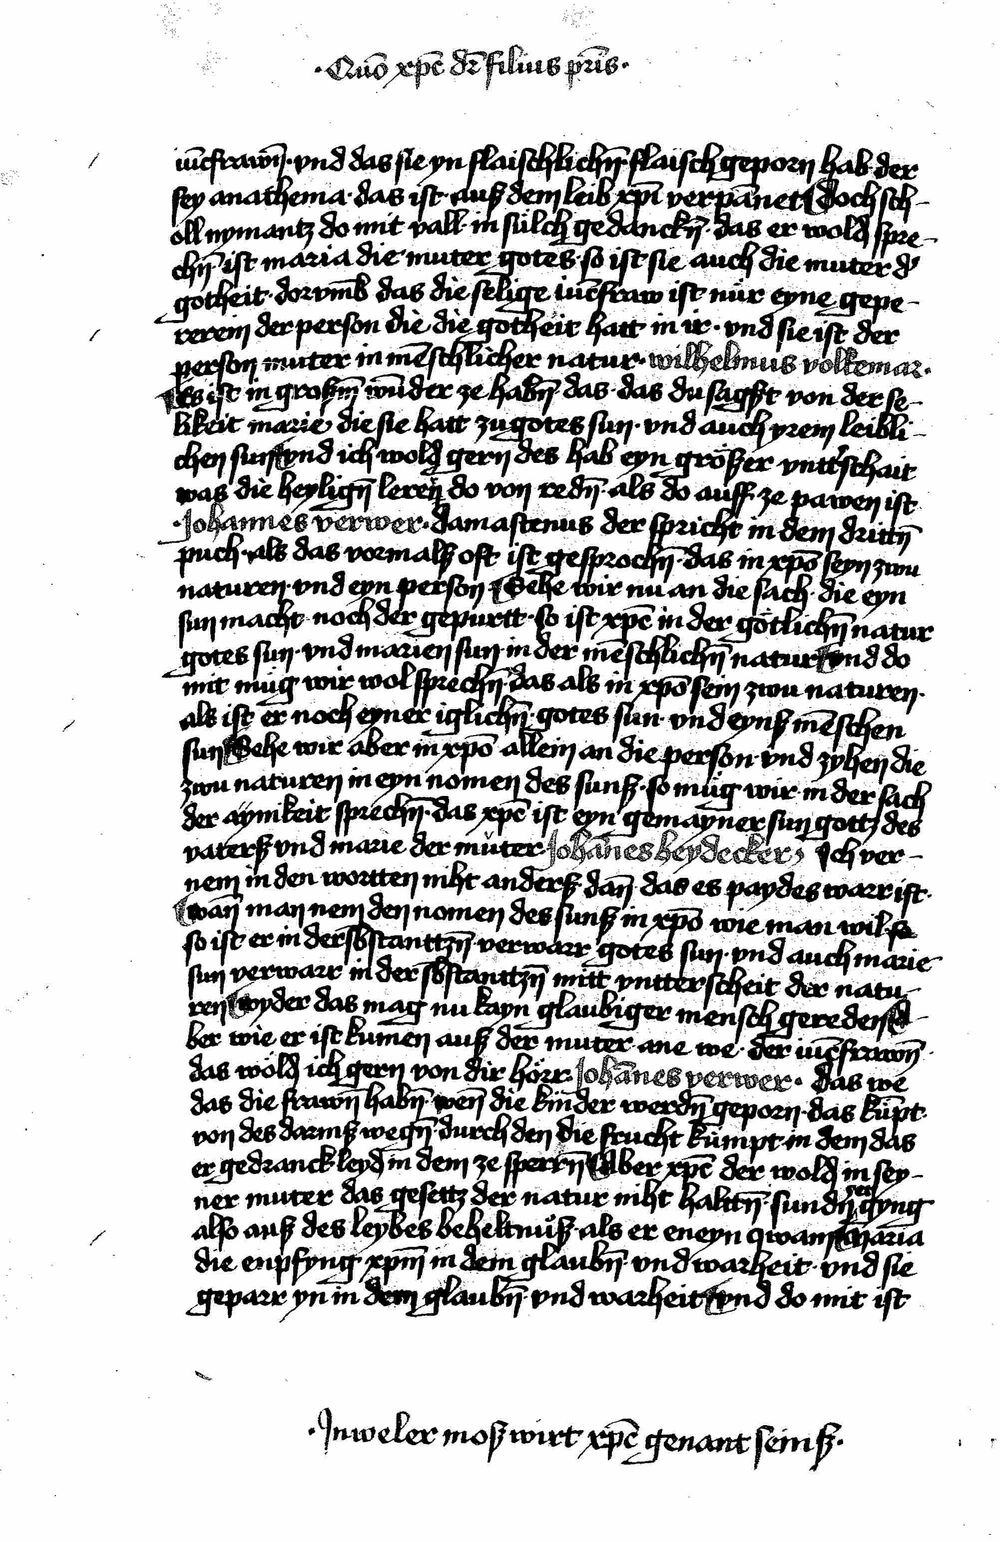 · Quō xp̄c dr̄ filius pr̄is ·
iūcfrawn̄ · vnd das sie yn flaischlichn̄ · flaisch geporn hab der
sey anathema · das ist · auß dem leib xp̄i verpānet doch sch-
oll nymantz do mit vall · in sülch gedanckn̄ · das er wold spre-
chn̄ · ist maria die muter gotes · so ist sie auch die muter d'
gotheit · dorvmb das die selige iūcfraw ist nür eyne gepe-
rerein der person die die gotheit hatt in ir · vnd sie ist der
person muter in mēschlicher natur · wilhelmus volkemar ·
Es ist in großm̄ wūder ze habn̄ das · das du sagst von der se-
likeit marie die sie hatt zu gotes sun · vnd auch yrem leibli-
chen sun vnd ich wold gern des hab eyn größer vntt'schait
was die heylign̄ lerern do von redn̄ · als do auff ze pawen ist
· Johannes verwer · damascenus der spricht in dem drittn̄
puch · als das vormalß oft ist gesprochn̄ · das in xp̄o seyn zwu
naturen · vnd eyn person Sehe wir nu an die sach · die eyn
sun macht · noch der gepurtt · so ist xp̄c in der götlichn̄ natur
gotes sun · vnd marien sun in der mēschlichn̄ natur vnd do
mit müg wir wol sprechn̄ · das als in xp̄o sein zwu naturen ·
als ist er noch eyner iglichn̄ · gotes sun · vnd eynß mēschen
sun Sehe wir aber in xp̄o allein an die person · vnd zyhen die
zwu naturen in eyn nomen des sunß · so müg wir in der sach
der aynikeit sprechn̄ · das xp̄c ist eyn gemayner sun gottz des
vaterß vnd marie der müter · Johānes heydecker Ich ver-
nem in den wortten niht anderß dan̄ das es paydes warr ist ·
wān man nem den nomen des sunß in xp̄o wie man wil · so
so ist er in der sbstanttzn̄ · verwarr gotes sun · vnd auch marie
sun verwarr in der sbstanttzn̄ mitt vntterscheit der natu-
ren wyder das mag nu kayn glaubiger mensch gereden A-
ber wie er ist kumen auß der muter ane we · der iūcfrawn̄ ·
das wöld ich gern von dir hörr · Johānes verwer · das we
das die frawn̄ habn̄ wen̄ die kinder werdn̄ geporn · das kūpt ·
von des darmß wegn̄ · durch den die frucht kümpt · in dem das
er gedranck leyd in dem ze sperrn̄ Aber xp̄c der wold in sey-
ner muter das gesettz der natur niht haltn̄ · sundn̄ er gyng
also auß des leybes beheltnüß · als er eneyn qwam maria
die enpfyng xp̄m in dem glaubn̄ · vnd warheit · vnd sie
geparr yn in dem glaubn̄ · vnd warheit vnd do mit ist
· In weler moß wirt xp̄c genant sein ß ·